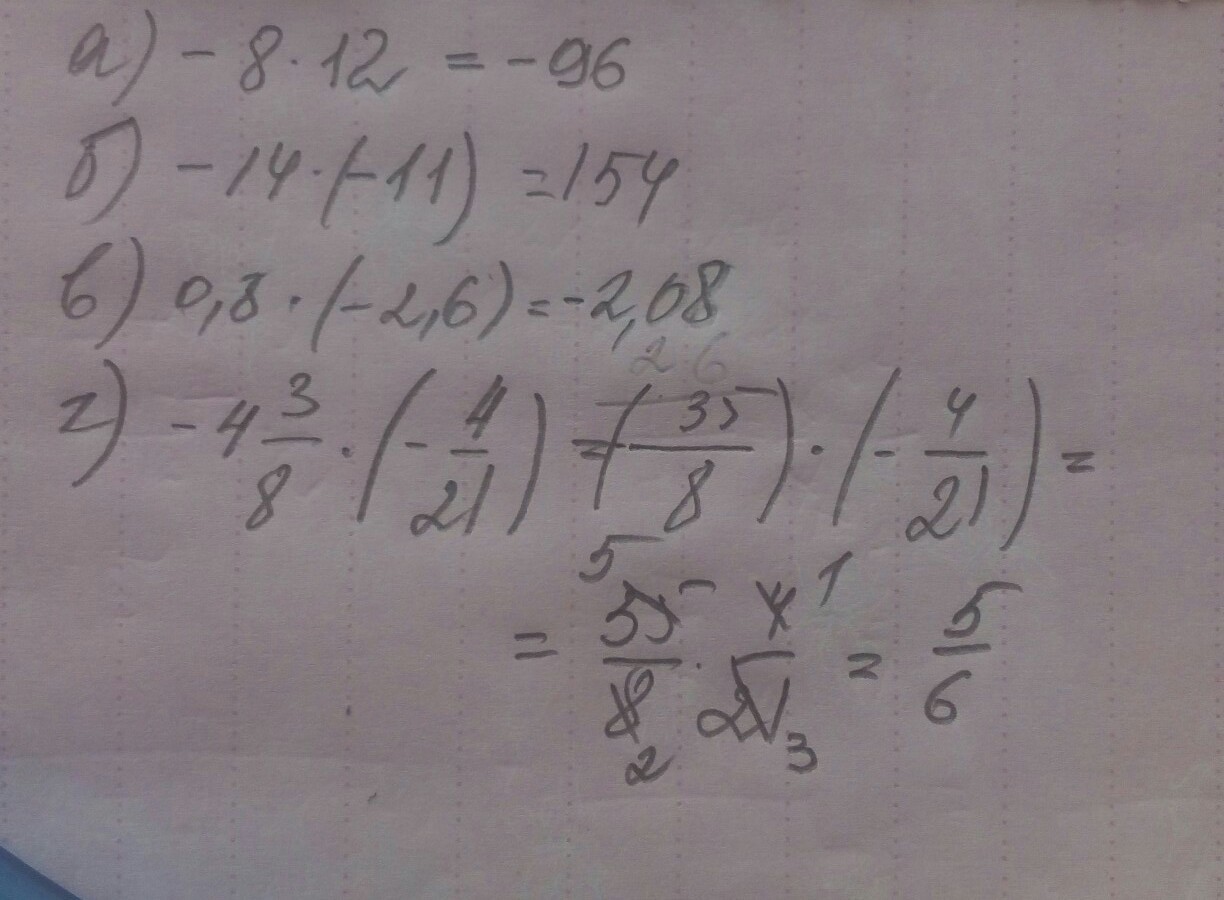 а) - 8 · 12 = -96
б) - 14 · (-11) = 154
в) 0,8 · (-2,6) = -2,08
26
г) -4 3/8 · (- 4/21) = (- 35/8) · (- 4/21) =
5 1
= 35/8 · 4/21 = 5/6
2 3